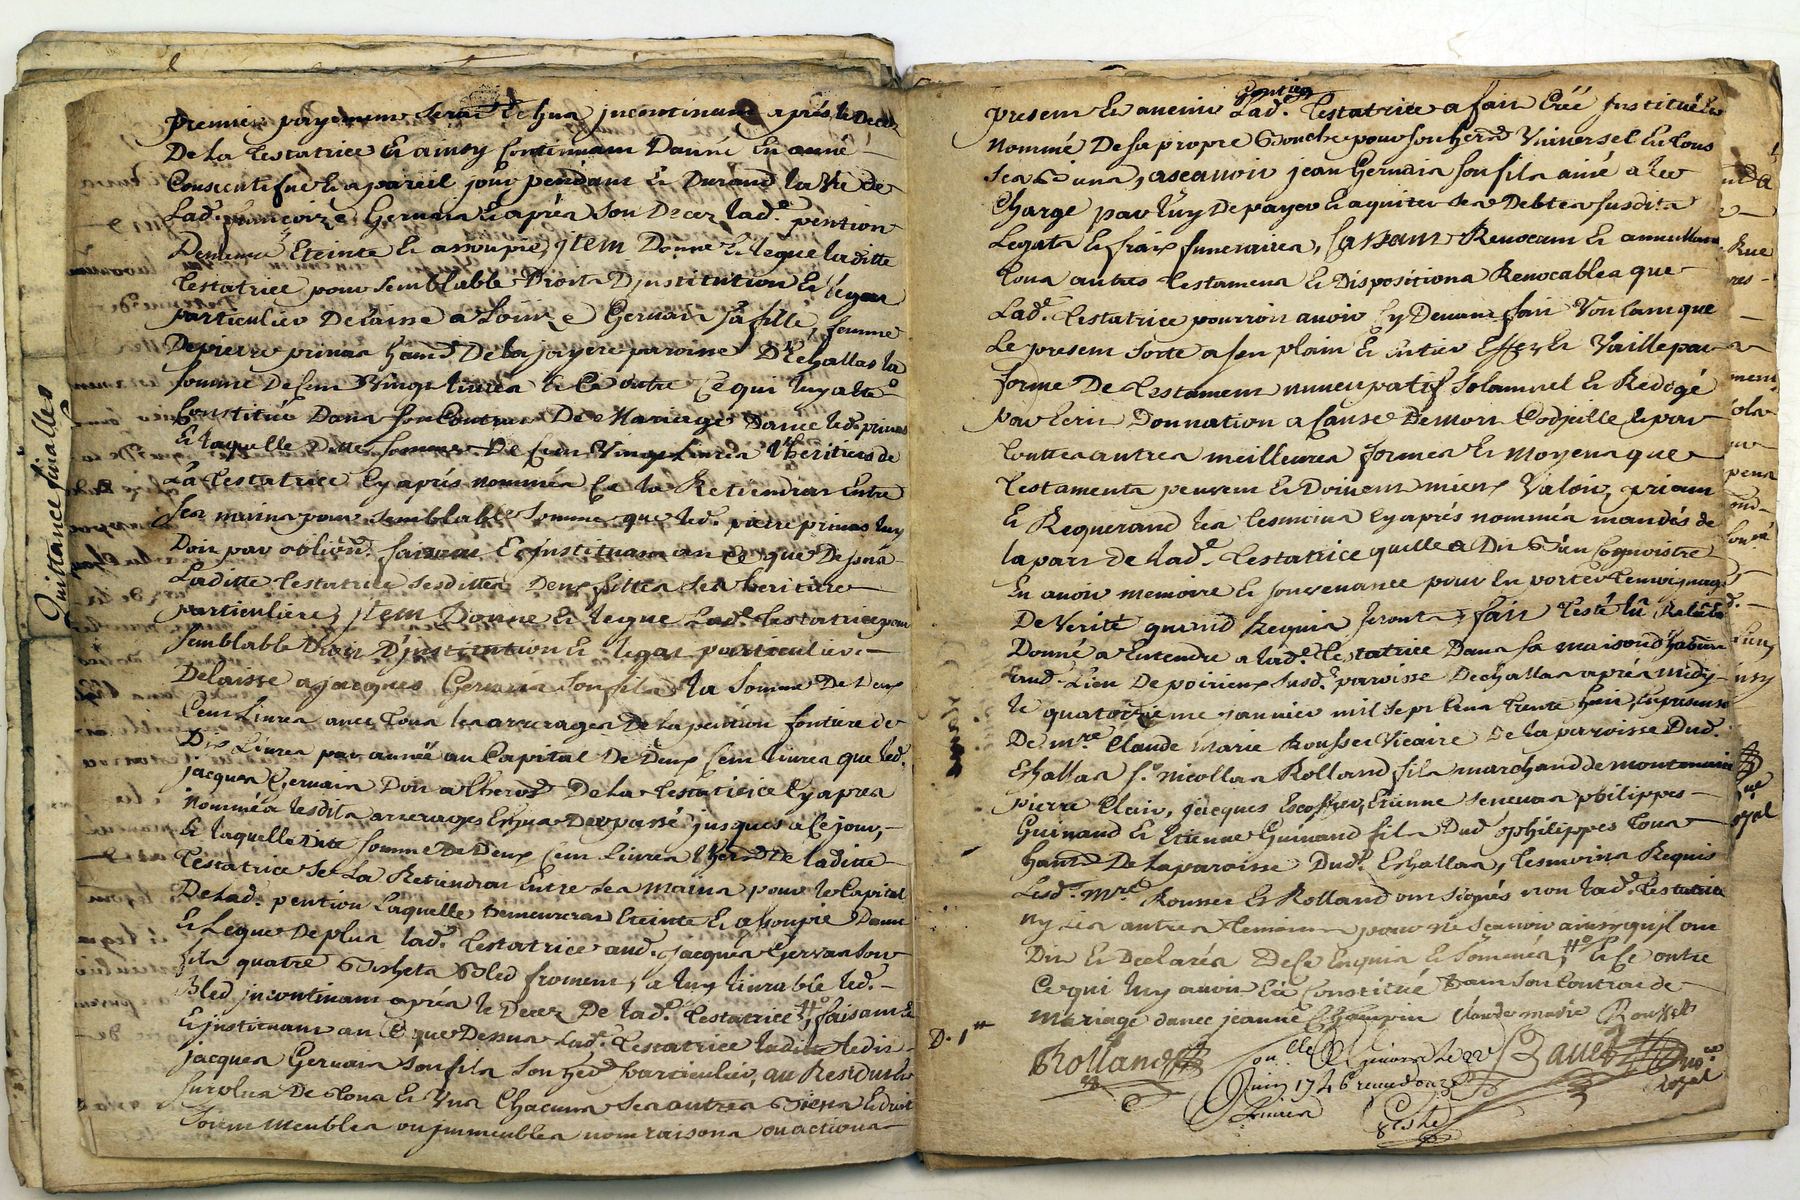 Quittance finalles
premier payement sera Echus jncontinant apres le Decez
De la Testatrice Et ainsy Continuant Dannée En année
Consecutifue Et a pareil jour pendant Et Durand la vie de
Lad.e francoize Germain Et apres son Decez lad.e pention
Demeure Eteinte Et assoupie, jtem Donne Et legue laditte
Testatrice pour semblable Droits Djnstitution Et legat
particulier Delaisse a Loüize Germain sa fille, femme
De pierre prinas hant De la jayere paroisse D'Echallas la
somme de Cent Vingt livres Et Ce outre Ce qui luy a esté
Constitué Dans son Contrat De Mariage Danec led. prinas
Et laquelle ditte somme De Cent Vingt Livres l'heritier de
La Testatrice Cy aprés nommée Ce la Retiendrat Entre
ses mains pour semblable somme que led. pierre prinas luy
Doit par oblion. faisant Et jnstituant au Ce que Dessus
Laditte Testatrice sesdittes Deux filles ses heritiere
particuliere, jtem Donne Et legue Lad.e Testatrice pour
semblable Droit D'jnstitution Et legat particulier
Delaisse a jacques Germain son fils la somme De Deux
Cent Livres avec Tous les arrerages De la pention fontiere de
Dix Livres par année au Capital De Deux Cent livres que led.
jacques Germain Doit a l'herod. De la Testatrice Cy apres
nommée lesdits arrerages Echus Du passé jusques a Ce jour,
Et laquelle Ditte somme De Deux Cent Livres l'herod. De laditte
Testatrice Se La Retiendrat Entre ses mains pour le Capital
De lad. pention Laquelle Demeurerat Eteinte Et assoupie Donne
Et Legue De plus lad.e Testatrice aud. jacques Germain son
fils quatre Bichets Bled froment, a luy livrable led.
Bled jncontinant aprés le Decez De lad.e Testatrice, faisant Et
Et jnstituant au Ce que Dessus Lad.e Testatrice ledit
jacques Germain son fils son herod. particulier, au Residu Et
surplus De Tous Et Uns Chacuns ses autres Biens Et droit
soient meubles ou jmmeubles noms raisons ou actions
present Et avenir Lad.e Testatrice a fait Créé Institué Et
pontieu
Nommé De sa propre Bouche pour son herod. Universel En Tous
ses Biens, ascavoir jean Germain son fils ainé a la
Charge par luy De payer Et aquiter ses Debtes susdits
Legats Et fraix funeraires, Cassant Revocant Et annullant
Tous autres Testamens Et Dispositions Revocables que
Lad.e Testatrice pourroit avoir Cy Devant fait Voulant que
Le present sorte a son plain Et Entier Effet Et Vaille par
forme De Testament nuncupatif solannel Et Redigé
par Ecrit Donnation a Cause De mort Codjcille Et par
Touttes autres meilleures formes Et moyens que
Testaments peuvent Et Doivent mieux Valoir, priant
Et Requerand les Tesmoins Cy aprés nommés mandés de
la part de lad.e Testatrice quelle a Dit Bien Cognoistre
En avoir memoire Et souvenance pour En porter Temoignage
De Verité quand Requis seronts, fait Testé lû Releüe
Donné a Entendre a lad.e Testatrice Dans sa maison d'habion
Aud. Lieu De poirieux susd. paroisse D'Echallas aprés midy
le quatorzieme janvier mil sept Cens Trente huit, En presence
De m.re Claude Marie Rousset Vicaire De la paroisse Dud.
Echallas s.r Nicollas Rolland fils marchand de montmain
pierre Clair, jacques Escoffier, Etienne Senevas philippes
Guinand Et Etienne Guinand fils Dud. philippes Tous
hants De la paroisse Dud. Echallas, Tesmoins Requis
Lesd. m.re Rousset Et Rolland ont signés non lad.e Testatrice
ny les autres Temoins pour ne scavoir ainsy qu'jl ont
Dit Et Declarés De Ce Enquis Et Sommés, Et Ce outre
Ce qui luy avoit Eté Constitué Dans son Contrat de
mariage danec jeanne Champin Claude marie Rousset
D. 1tt
Rolland
Juin 1746 receu douze
Livres
Bauet no.re
royal